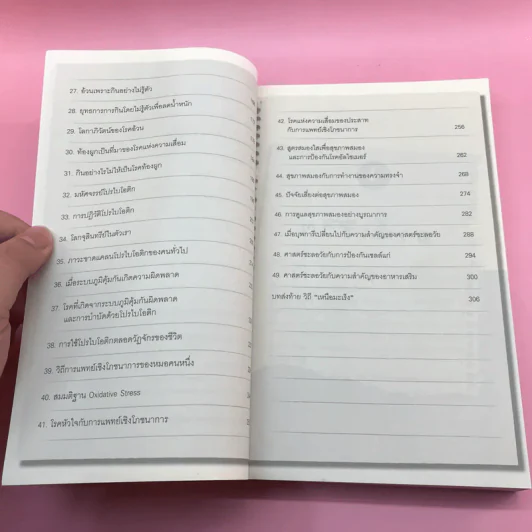 27. อ้วนเพราะกินอย่างไม่รู้ตัว
28. ยุทธการการกินโดยไม่รู้ตัวเพื่อลดน้ำหนัก
29. โลกาภิวัตน์ของโรคอ้วน
30. ท้องผูกเป็นที่มาของโรคแห่งความเสื่อม
31. กินอย่างไรไม่ให้เป็นโรคท้องผูก
32. มหัศจรรย์โปรไบโอติก
33. การปฏิวัติโปรไบโอติก
34. โลกจุลินทรีย์ในตัวเรา
35. ภาวะขาดแคลนโปรไบโอติกของคนทั่วไป
36. เมื่อระบบภูมิคุ้มกันเกิดความผิดพลาด
37. โรคที่เกิดจากระบบภูมิคุ้มกันผิดพลาด
และการบำบัดด้วยโปรไบโอติก
38. การใช้โปรไบโอติกตลอดวัฏจักรของชีวิต
39. วิถีการแพทย์เชิงโภชนาการของหมอคนหนึ่ง
40. สมมติฐาน Oxidative Stress
41. โรคหัวใจกับการแพทย์เชิงโภชนาการ
42. โรคแห่งความเสื่อมของประสาท
กับการแพทย์เชิงโภชนาการ 256
43. สูตรสมองใสเพื่อสุขภาพสมอง
และการป้องกันโรคอัลไซเมอร์ 262
44. สุขภาพสมองกับการทำงานของความทรงจำ 268
45. ปัจจัยเสี่ยงต่อสุขภาพสมอง 274
46. การดูแลสุขภาพสมองอย่างบูรณาการ 282
47. เมื่อบุพการีเปลี่ยนไปกับความสำคัญของศาสตร์ชะลอวัย 288
48. ศาสตร์ชะลอวัยกับการป้องกันเซลล์แก่ 294
49. ศาสตร์ชะลอวัยกับความสำคัญของอาหารเสริม 300
บทส่งท้าย วิถี "เหนือมะเร็ง" 306